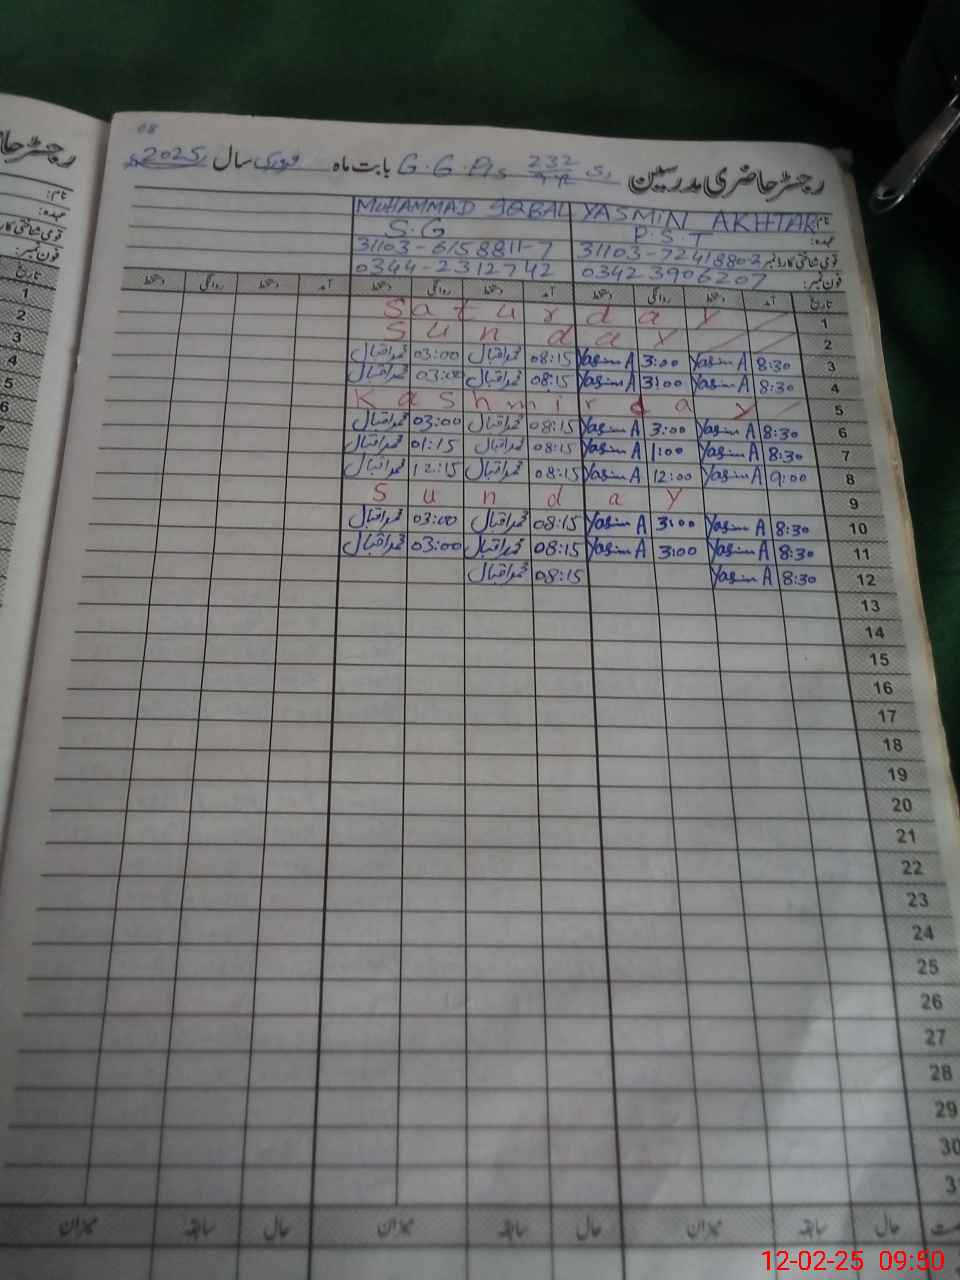 08
رجسٹر حاضری مدرسین G.G.P/s 232/9-R بابت ماہ فروری سال 2025ء
نام: YASMIN AKHTAR MUHAMMAD IQBAL
عہدہ: P.S.T S.G
قومی شناختی کارڈ نمبر 31103-7241880-2 31103-6158811-7
فون نمبر: 0342 3906207 0344-2312742
تاریخ آمد دستخط روانگی دستخط آمد دستخط روانگی دستخط آمد دستخط روانگی دستخط
1 Saturday
2 Sunday
3 8:30 Yasmin A 3:00 Yasmin A 08:15 محمد اقبال 03:00 محمد اقبال
4 8:30 Yasmin A 3:00 Yasmin A 08:15 محمد اقبال 03:00 محمد اقبال
5 Kashmir day
6 8:30 Yasmin A 3:00 Yasmin A 08:15 محمد اقبال 03:00 محمد اقبال
7 8:30 Yasmin A 1:00 Yasmin A 08:15 محمد اقبال 01:15 محمد اقبال
8 9:00 Yasmin A 12:00 Yasmin A 08:15 محمد اقبال 12:15 محمد اقبال
9 Sunday
10 8:30 Yasmin A 3:00 Yasmin A 08:15 محمد اقبال 03:00 محمد اقبال
11 8:30 Yasmin A 3:00 Yasmin A 08:15 محمد اقبال 03:00 محمد اقبال
12 8:30 Yasmin A 08:15 محمد اقبال
13
14
15
16
17
18
19
20
21
22
23
24
25
26
27
28
29
30
حال سابقہ میزان حال سابقہ میزان حال سابقہ میزان
رجسٹر حا
نام:
عہدہ:
قومی شناختی کارڈ
فون نمبر:
تاریخ
1
2
3
4
5
6
7
12-02-25 09:50